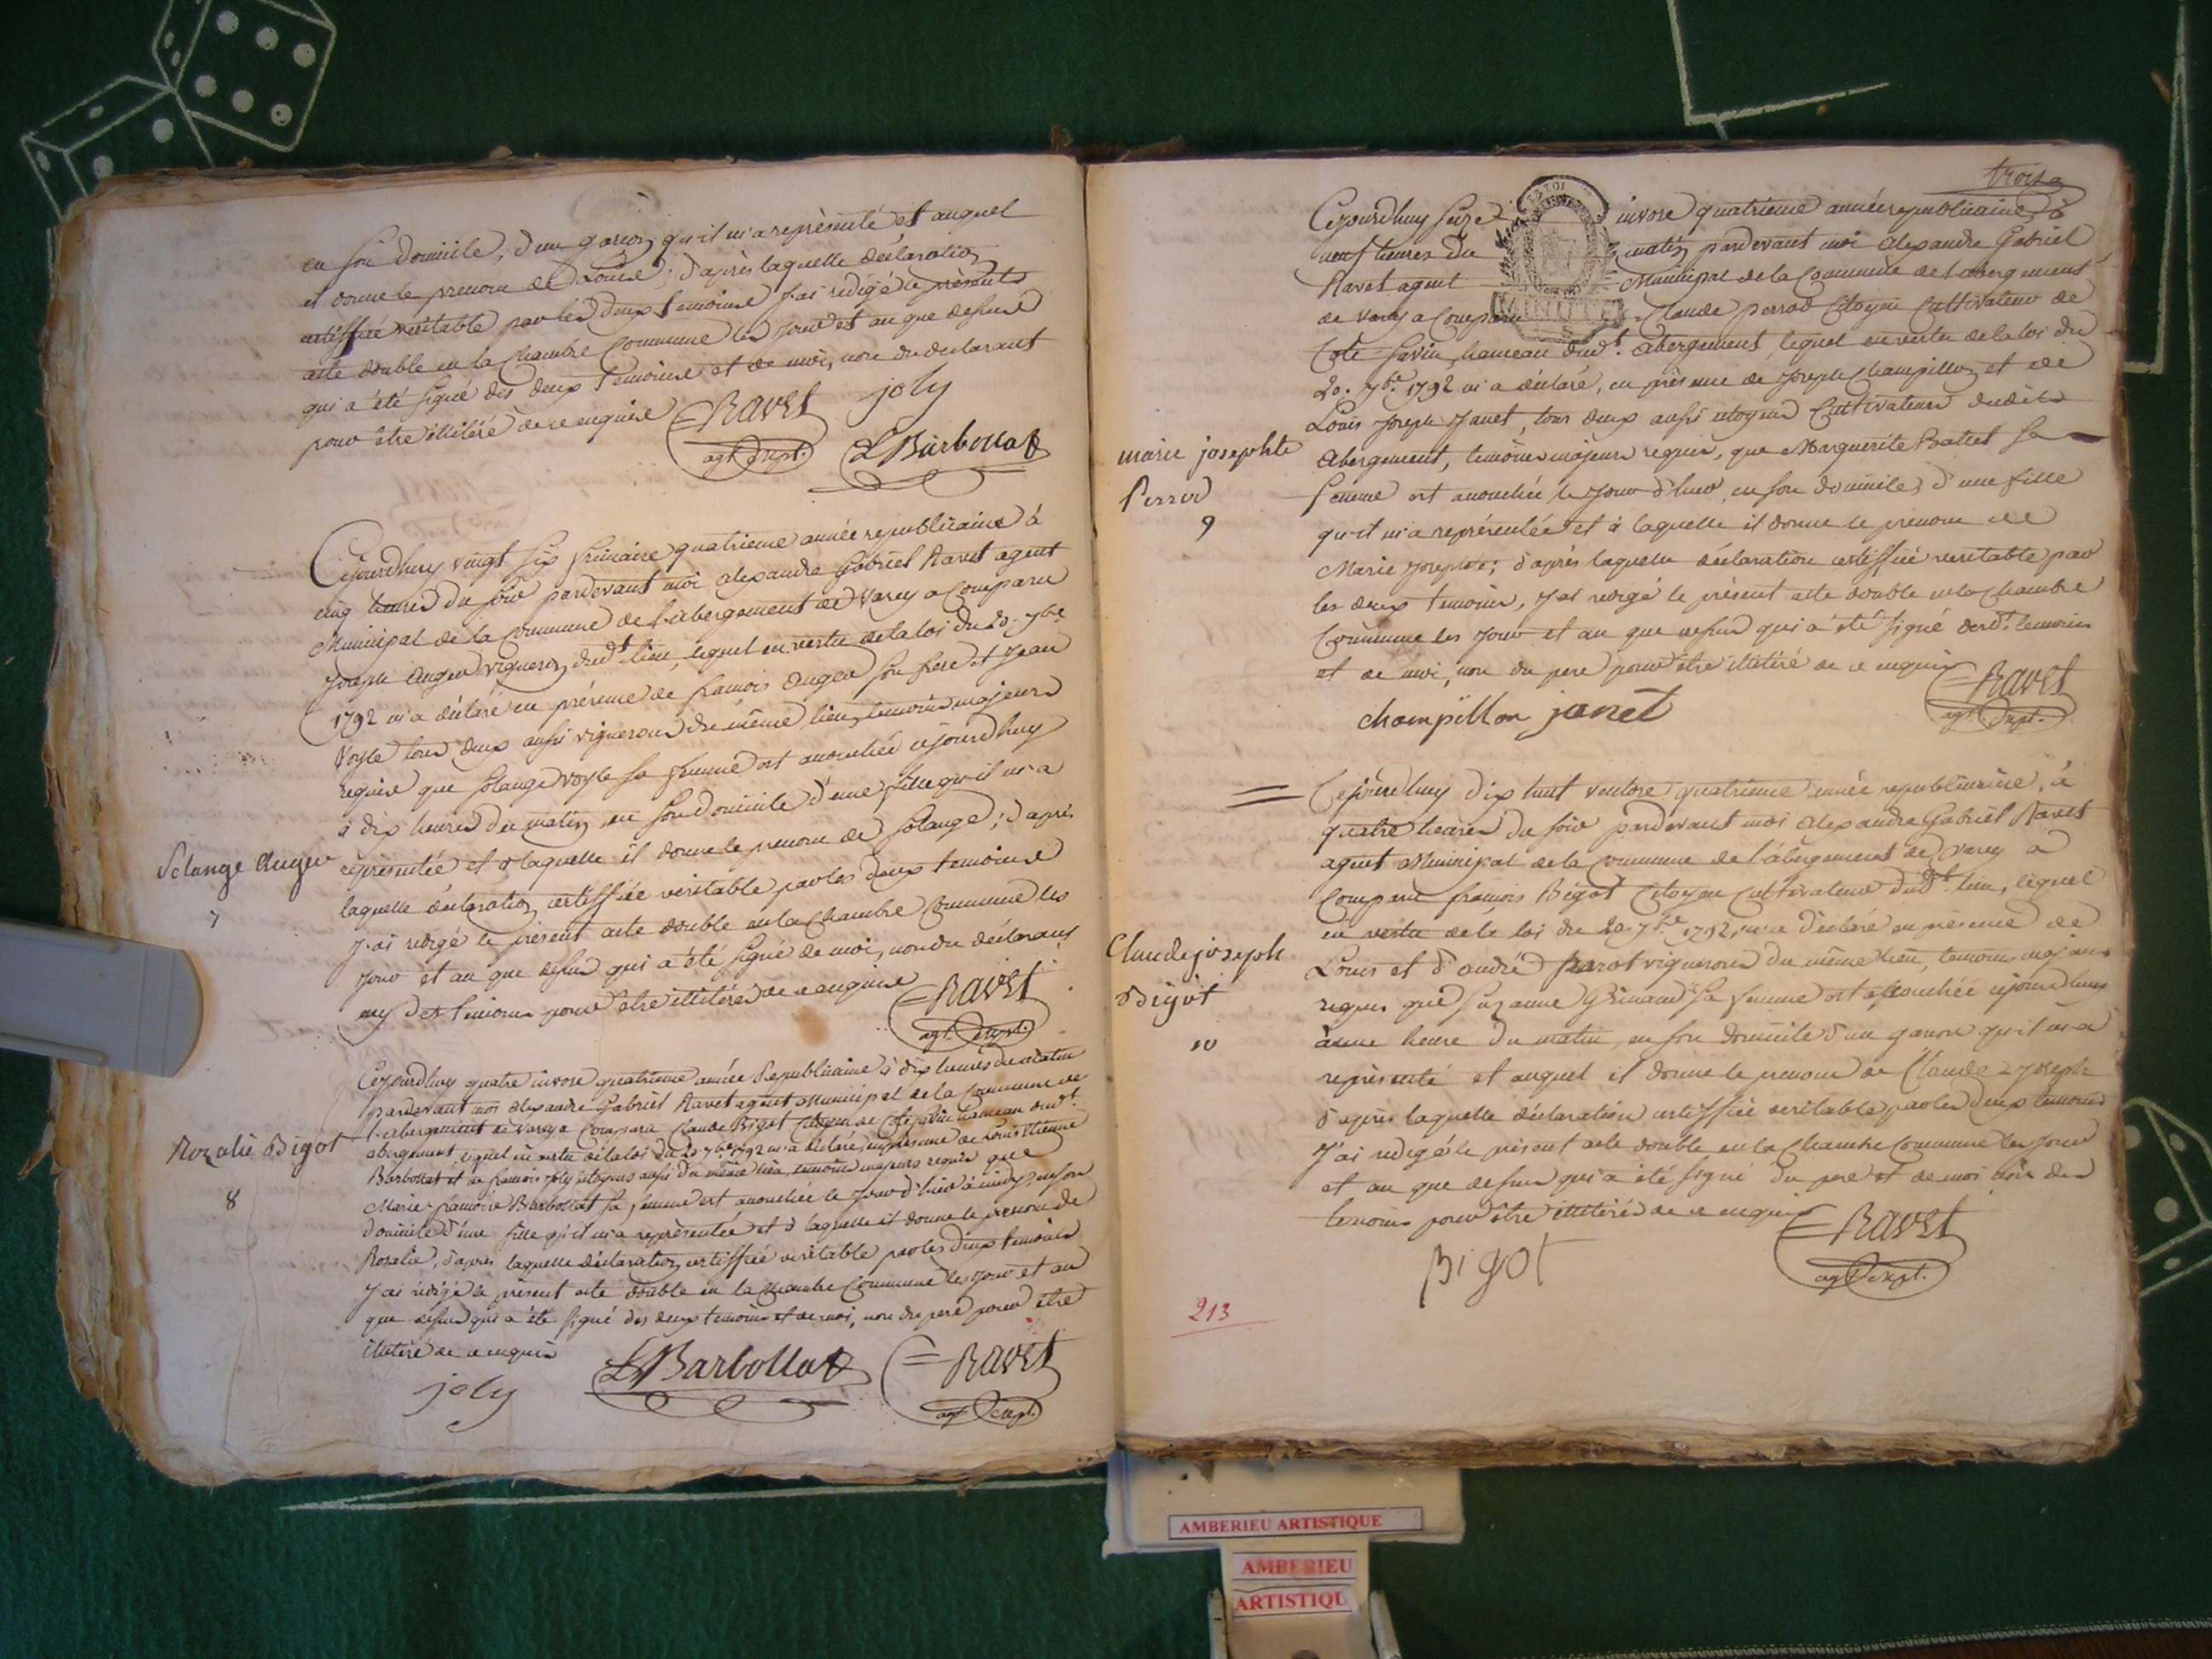 en son domicile, d'un garçon qu'il m'a représenté et auquel
il donne le prenom de Louis; d'après laquelle déclaration
certiffiée véritable par les deux temoins J'ai rédigé le présent
acte double en la Chambre Commune les Jour et an que dessus
qui a été signé des deux temoins et de moi, non du declarant
pour être illitéré de ce enquis
Ravet joly
agt. Mpl. L Barbollat
Cejourdhuy vingt six frimaire quatrieme année republicaine à
cinq heures du soir pardevant moi alexandre Gabriel Ravet agent
Municipal de la Commune de l'abergement de Varey a Comparu
Joseph Auger vigneron dud.t lieu, lequel en vertu de la loi du 20. 7bre
1792 m'a déclaré en présence de francois Auger son frere et Jean
Voyle tous deux aussi vignerons du même lieu, temoins majeurs
requis que Solange Voyle sa femme est accouchée cejourdhuy
à dix heures du matin, en son domicile d'une fille qu'il m'a
Solange Auger
représentée et à laquelle il donne le prenom de Solange; d'après
laquelle déclaration certiffiée veritable par les deux temoins
7
J'ai redigé le présent acte double en la Chambre Commune les
Jour et an que dessus qui a été signé de moi, non du déclarant
ny des temoins pour être illitérés de ce enquis
Ravet
agt. Mpl.
Cejourdhuy quatre nivose quatrieme année Republicaine à dix heures du matin
pardevant moi alexandre Gabriel Ravet agent Municipal de la Commune de
l'abergement de Varey a Comparu Claude Bigot Citoyen de Cote savin hameau dud.t
Rozalie Bigot
abergement, lequel en vertu de la loi du 20 7bre 1792 m'a déclaré, en présence de Louis Etienne
Barbollat et de francois Joly citoyens aussi du même lieu, temoins majeurs requis que
8
Marie francoise Barbollat sa femme est accouchée le Jour d'hier à midy, en son
domicile d'une fille qu'il m'a représentée et à laquelle il donne le prénom de
Rosalie, d'après laquelle déclaration certiffiée véritable par les deux temoins
J'ai rédigé le présent acte double en la Chambre Commune les Jour et an
que dessus qui a été signé des deux temoins et de moi, non du pere pour etre
illitéré de ce enquis
joly L Barbollat Ravet
agt. Mpl.
trois
Cejourdhuy seize nivose quatrieme année republicaine à
neuf heures du matin pardevant moi alexandre Gabriel
Ravet agent Municipal de la Commune de l'abergement
de Varey a Comparu Claude perrod Citoyen Cultivateur de
MINUTE
Cote Savin, hameau dud.t abergement, lequel en vertu de la loi du
20. 7bre 1792 m'a déclaré, en présence de Joseph Champillon et de
Louis Joseph Janet, tous deux aussi citoyens Cultivateurs dudit
marie josephte
Abergement, temoins majeurs requis, que Marguerite Brattet sa
Perrod
femme est accouchée le Jour d'hier, en son domicile, d'une fille
9
qu'il m'a représentée et à laquelle il donne le prenom de
Marie Josephte; d'après laquelle déclaration certiffiée veritable par
les deux temoins, J'ai redigé le présent acte double en la Chambre
Commune les Jour et an que dessus qui a été signé desd.ts temoins
et de moi, non du pere pour être illitéré de ce enquis
champillon janet Ravet
agt. Mpl.
Cejourdhuy dix huit ventose quatrieme année republicaine, à
quatre heures du soir pardevant moi alexandre Gabriel Ravet
agent Municipal de la Commune de l'abergement de Varey a
Comparu francois Bigot Citoyen Cultivateur dud.t lieu, lequel
en vertu de la loi du 20. 7bre 1792, m'a déclaré en présence de
Claude joseph
Louis et d'andré Parrot vignerons du même lieu, temoins majeurs
Bigot
requis que Suzanne Grinand sa femme est accouchée cejourdhuy
10
à une heure du matin, en son domicile d'un garcon qu'il m'a
représenté et auquel il donne le prenom de Claude Joseph
d'après laquelle déclaration certiffiée veritable par les deux temoins
J'ai redigé le présent acte double en la Chambre Commune les Jour
et an que dessus qui a été signé du pere et de moi non des
temoins pour être illitérés de ce enquis
Bigot Ravet
agt. Mpl.
213
AMBERIEU ARTISTIQUE
AMBERIEU
ARTISTIQU